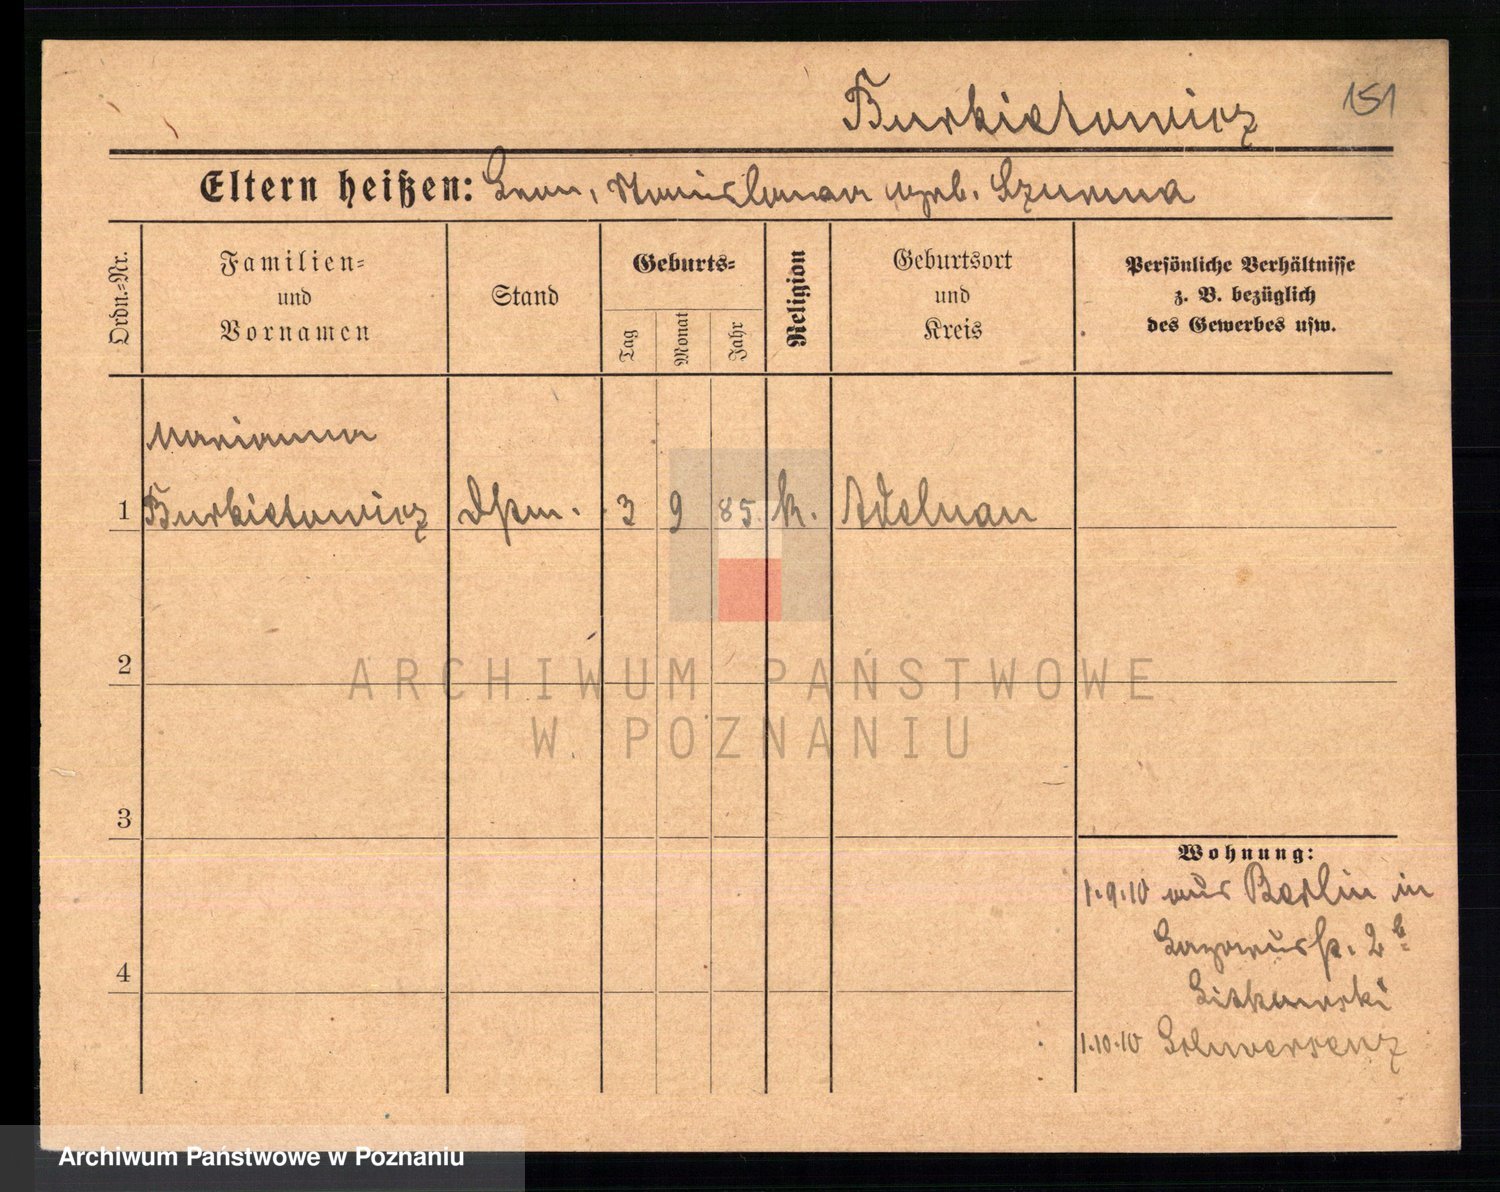 Burkietowicz 151
Eltern heißen: Leon, Stanislawa geb. Szurma
Ordn.-Nr.
Familien-
und
Vornamen
Stand
Geburts-
Tag
Monat
Jahr
Religion
Geburtsort
und
Kreis
Persönliche Verhältnisse
z. B. bezüglich
des Gewerbes usw.
Marianna
1 Burkietowicz 3 9 85. k. Adelnau
2
ARCHIWUM PAŃSTWOWE
W POZNANIU
3
Wohnung:
1.9.10 aus Berlin in
Lazarusstr. 2b
4
1.10.10 Schwersenz
Archiwum Państwowe w Poznaniu